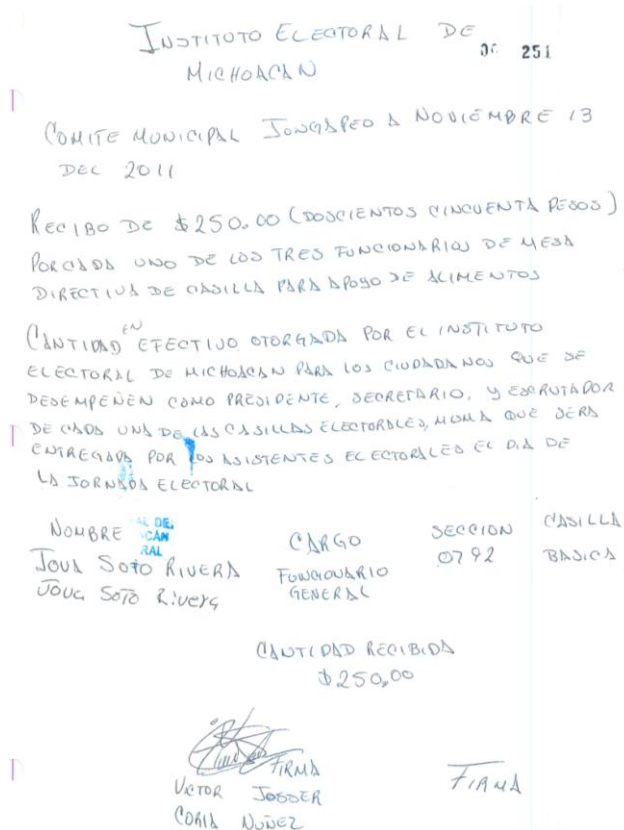 INSTITUTO ELECTORAL DE
251
MICHOACAN
COMITE MUNICIPAL JUNGAPEO A NOVIEMBRE 13
DEL 2011
RECIBO DE $250.00 (DOSCIENTOS CINCUENTA PESOS)
POR CADA UNO DE LOS TRES FUNCIONARIOS DE MESA
DIRECTIVA DE CASILLA PARA APOYO DE ALIMENTOS
CANTIDAD EN EFECTIVO OTORGADA POR EL INSTITUTO
ELECTORAL DE MICHOACAN PARA LOS CIUDADANOS QUE SE
DESEMPEÑEN COMO PRESIDENTE, SECRETARIO, Y ESCRUTADOR
DE CADA UNA DE LAS CASILLAS ELECTORALES, MISMA QUE SERA
ENTREGADA POR LOS ASISTENTES ELECTORALES EL DIA DE
LA JORNADA ELECTORAL
AL DE
CÁN
RAL
NOMBRE CARGO SECCION CASILLA
JOVA SOTO RIVERA FUNCIONARIO GENERAL 0792 BASICA
Jova Soto Rivera
CANTIDAD RECIBIDA
$250,00
FIRMA FIRMA
VICTOR
CORIA NUÑEZ